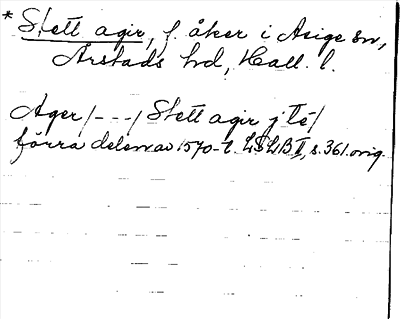 * Stett agir, f. åker i Asige sn,
Årstads hd, Hall. l.
Ager /---/ Stett agir j Té/
förra delen av 1570-t. LSLB II, s. 361. orig.